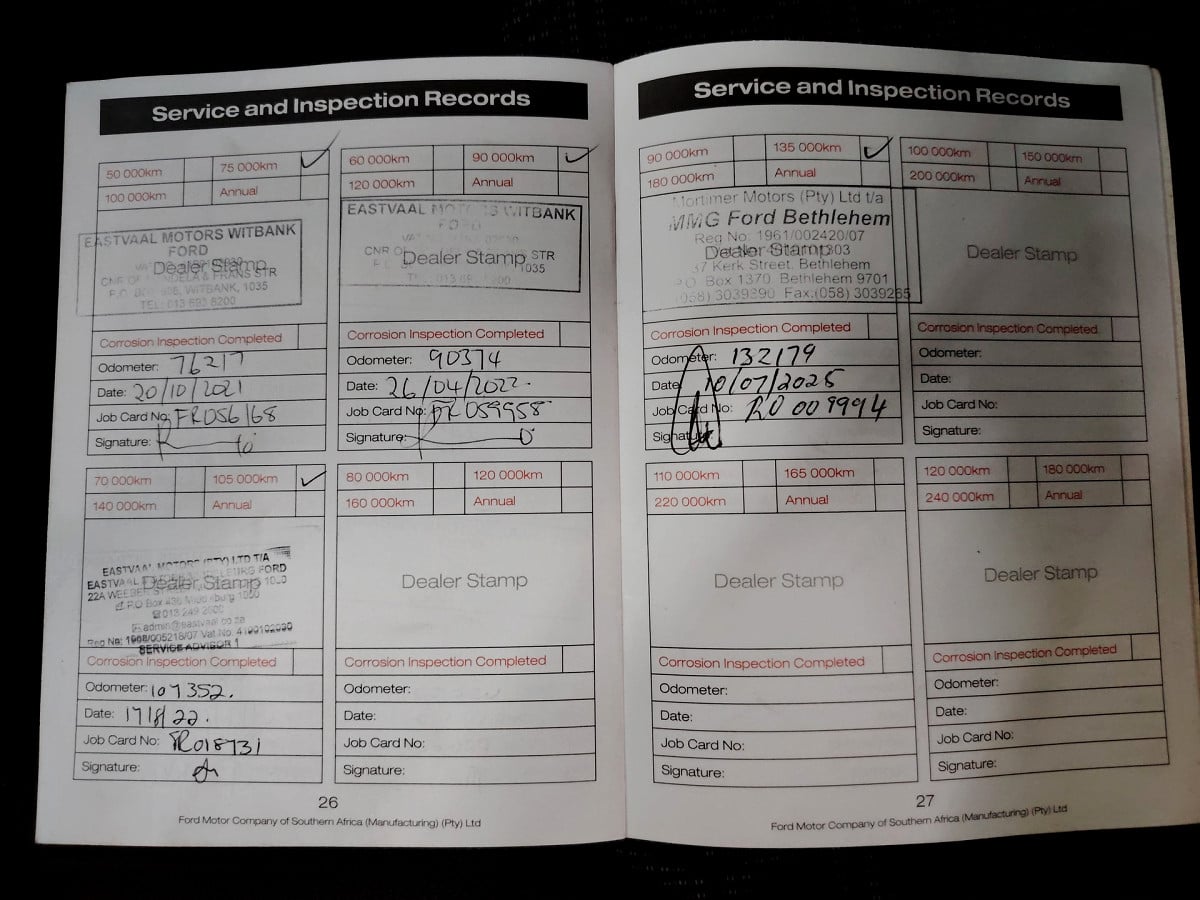 Service and Inspection Records
50 000km 75 000km ✓
100 000km Annual
EASTVAAL MOTORS WITBANK
FORD
Dealer Stamp
CNR OF & FRANS STR
P.O. WITBANK, 1035
TEL: 013 693 8200
Corrosion Inspection Completed
Odometer: 76217
Date: 20/10/2021
Job Card No: FR056168
Signature:
60 000km 90 000km ✓
120 000km Annual
EASTVAAL MOTORS WITBANK
FORD
CNR STR
Dealer Stamp
1035
Corrosion Inspection Completed
Odometer: 90374
Date: 26/04/2022.
Job Card No: FR059958
Signature:
70 000km 105 000km ✓
140 000km Annual
EASTVAAL MOTORS (PTY) LTD T/A
EASTVAAL FORD
22A
Dealer Stamp
P.O Box
013 249 2600
admin@eastvaal.co.za
Reg No: Vat No. 4190102030
SERVICE ADVISOR 1
Corrosion Inspection Completed
Odometer: 107352.
Date: 17/8/22.
Job Card No: FR018731
Signature:
80 000km 120 000km
160 000km Annual
Dealer Stamp
Corrosion Inspection Completed
Odometer:
Date:
Job Card No:
Signature:
26
Ford Motor Company of Southern Africa (Manufacturing) (Pty) Ltd
Service and Inspection Records
90 000km 135 000km ✓
180 000km Annual
Mortimer Motors (Pty) Ltd t/a
MMG Ford Bethlehem
Reg No: 1961/002420/07
Dealer Stamp
37 Kerk Street, Bethlehem
P.O. Box 1370, Bethlehem 9701
(058) 3039390 Fax:(058) 3039265
Corrosion Inspection Completed
Odometer: 132179
Date: 10/07/2025
Job Card No: RO 009994
Signature:
100 000km 150 000km
200 000km Annual
Dealer Stamp
Corrosion Inspection Completed
Odometer:
Date:
Job Card No:
Signature:
110 000km 165 000km
220 000km Annual
Dealer Stamp
Corrosion Inspection Completed
Odometer:
Date:
Job Card No:
Signature:
120 000km 180 000km
240 000km Annual
Dealer Stamp
Corrosion Inspection Completed
Odometer:
Date:
Job Card No:
Signature:
27
Ford Motor Company of Southern Africa (Manufacturing) (Pty) Ltd